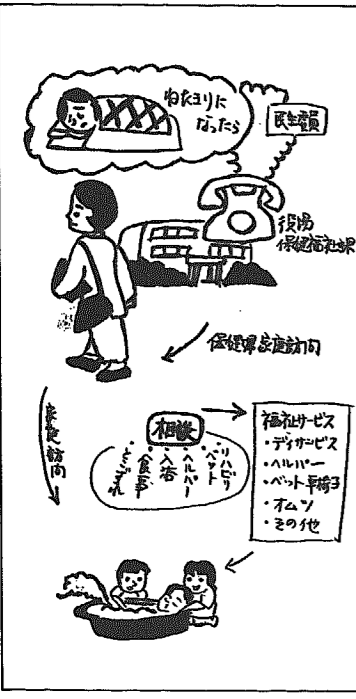 ねたきりに
なったら
民生委員
役場
保健福祉課
保健婦家庭訪問
家庭訪問
相談
リハビリ
ベット
ヘルパー
入浴
食事
とこずれ
福祉サービス
・デイサービス
・ヘルパー
・ベット車椅子
・オムツ
・その他